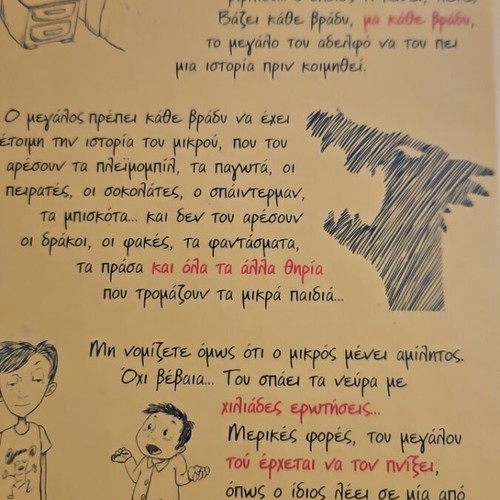 Βάζει κάθε βράδυ, μα κάθε βράδυ,
το μεγάλο του αδελφό να του πει
μια ιστορία πριν κοιμηθεί.
Ο μεγάλος πρέπει κάθε βράδυ να έχει
έτοιμη την ιστορία του μικρού, που του
αρέσουν τα πλεϊμομπίλ, τα παγωτά, οι
πειρατές, οι σοκολάτες, ο σπάιντερμαν,
τα μπισκότα... και δεν του αρέσουν
οι δράκοι, οι φακές, τα φαντάσματα,
τα πράσα και όλα τα άλλα θηρία
που τρομάζουν τα μικρά παιδιά...
Μη νομίζετε όμως ότι ο μικρός μένει αμίλητος.
Όχι βέβαια... Του σπάει τα νεύρα με
χιλιάδες ερωτήσεις...
Μερικές φορές, του μεγάλου
τού έρχεται να τον πνίξει,
όπως ο ίδιος λέει σε μία από